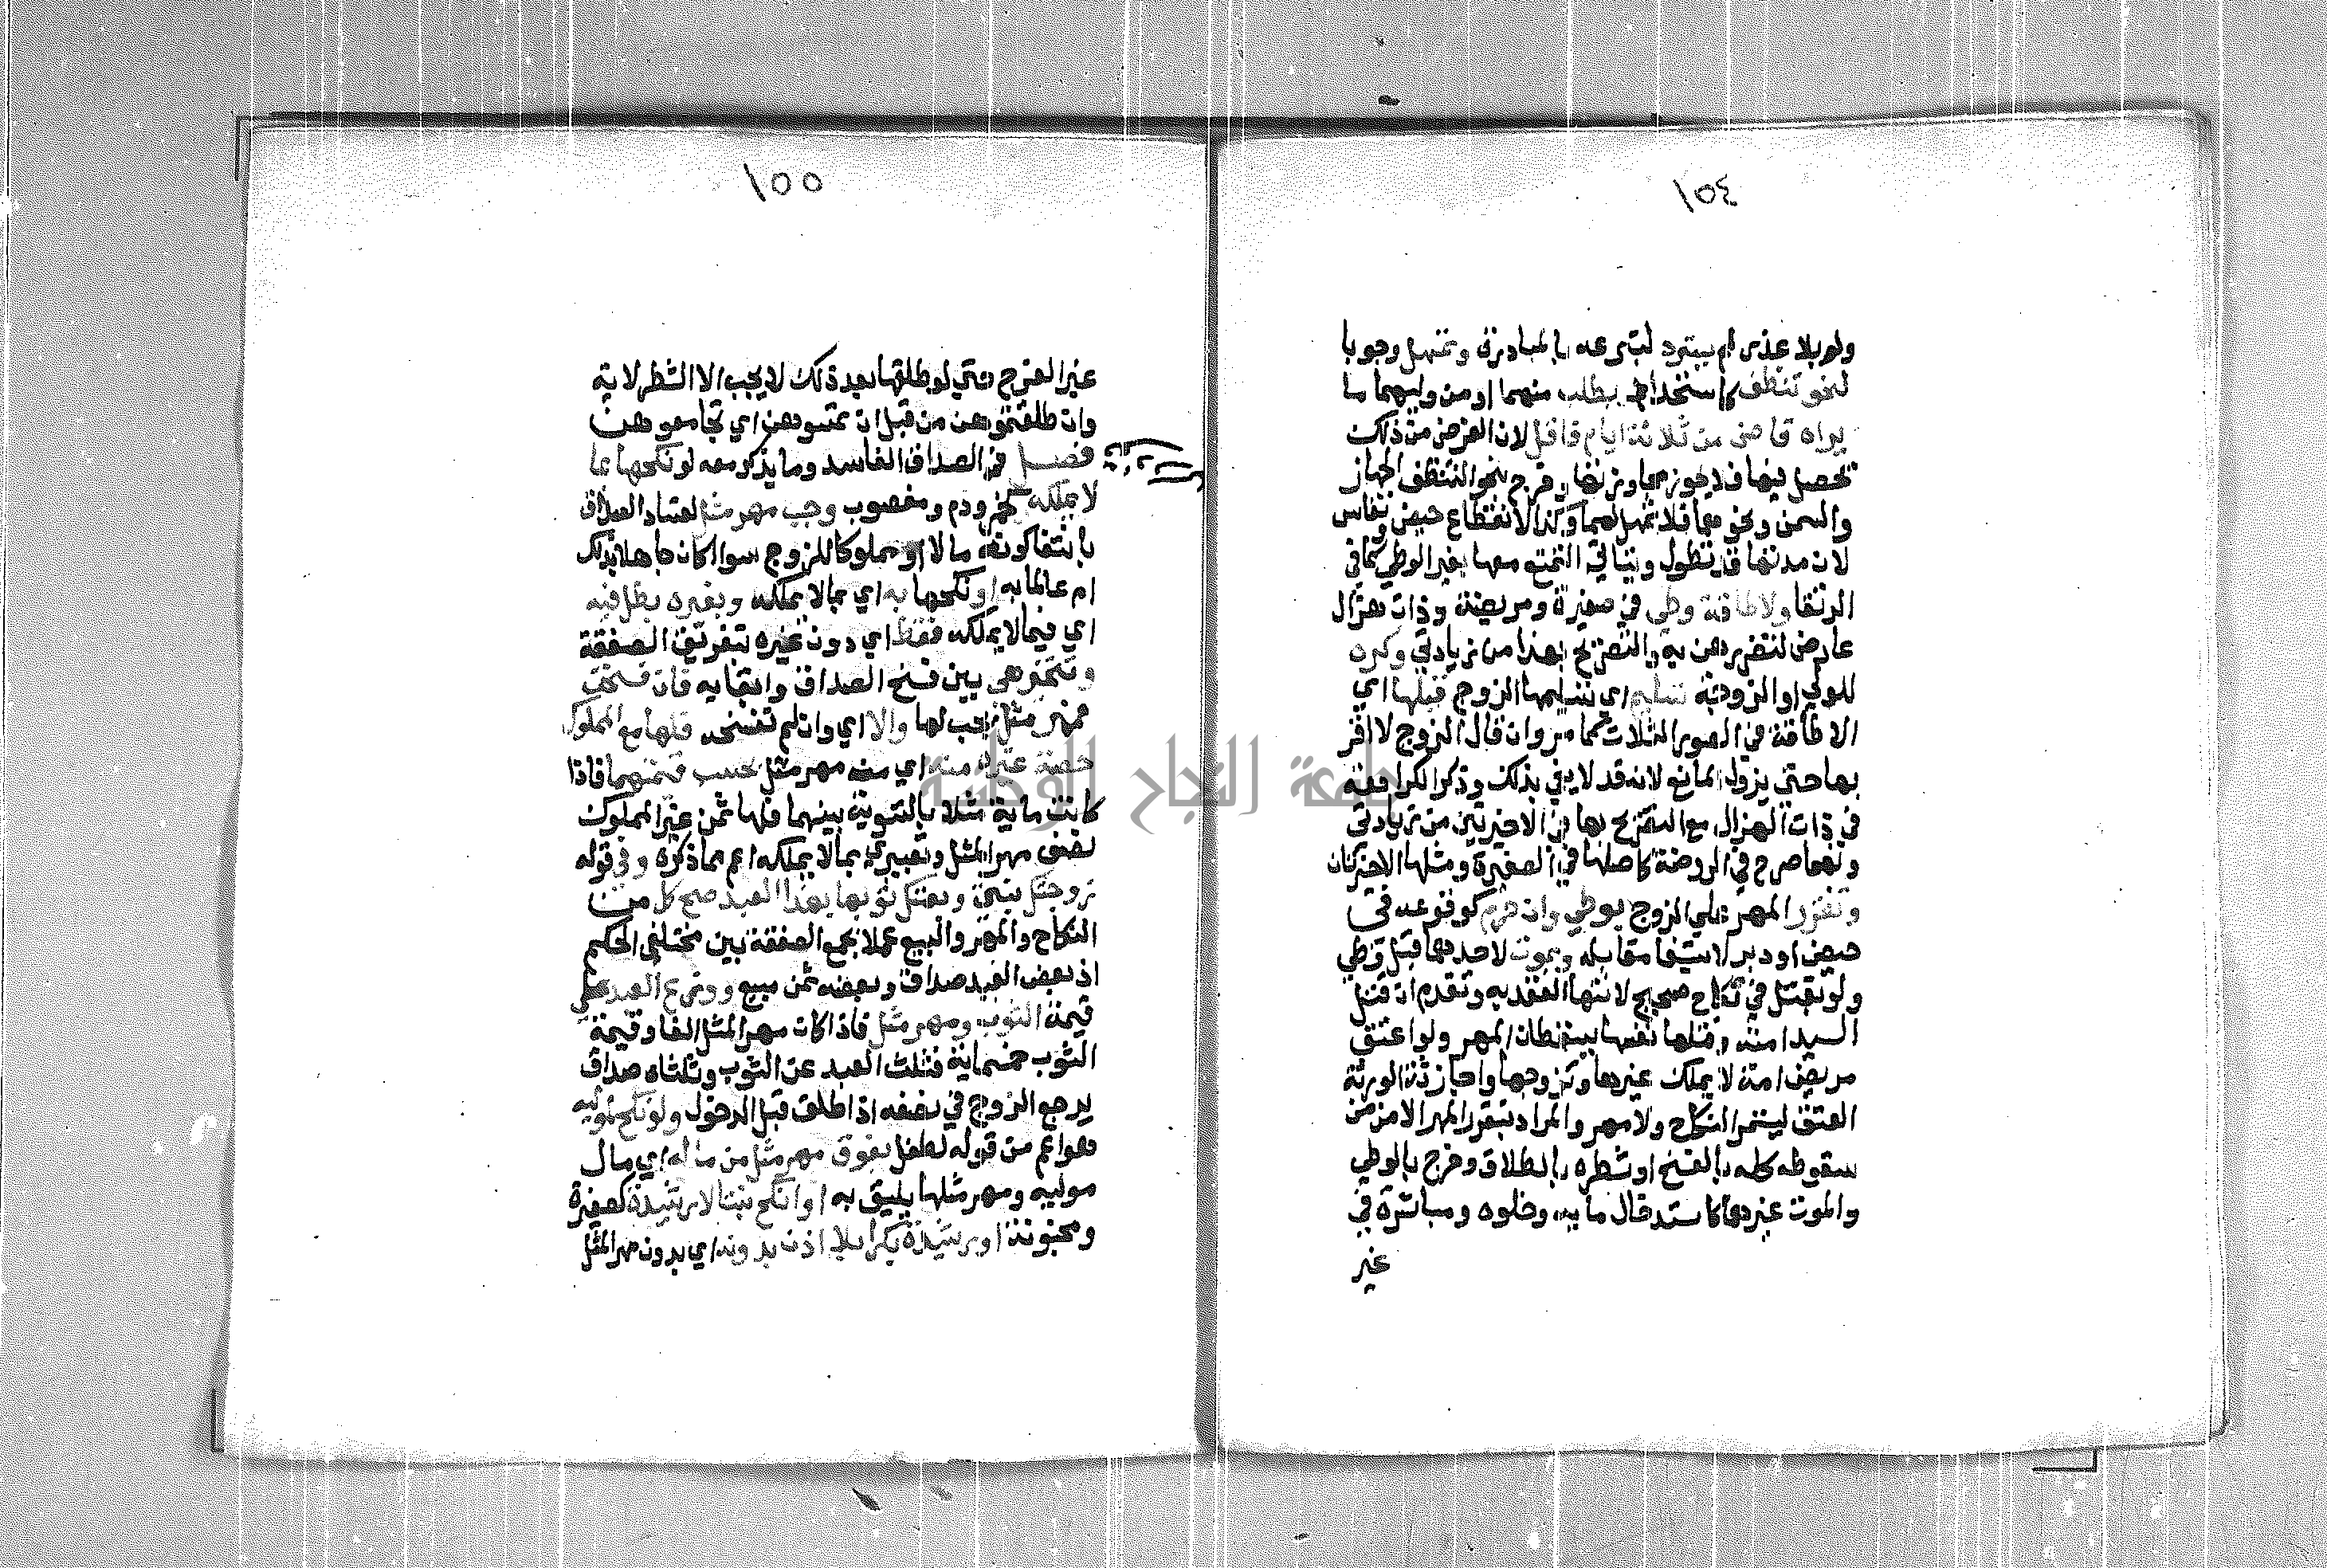 ١٥٤
ولو بلا عذر لم يسترد لتبرعه بالمبادرة وتمهل وجوبا
لنحو تنظف كاستحداد بطلب منهما او من وليهما ما
يراه قاض من ثلاثة ايام فاقل لان الغرض من ذلك
يحصل فيها فلا يجوز مجاوزتها وخرج بنحو التنظف الجهاز
والسمن ونحوهما فلا تمهل لهما وكذا لانقطاع حيض ونفاس
لان مدتها قد تطول ويتاتى التمتع معها بغير الوطي كما في
الرتقا ولاطاقة وطي في صغيرة ومريضة وذات هزال
عارض لتضررهن به والتصريح بهذا من زيادتي وكره
للولي او الزوجة تسليم اي تسليمها الزوج قبلها اي
الاطاقة في الصور الثلاث كما مر وان قال الزوج لا اقر
بها حتى يزول المانع لانه قد لا يفي بذلك وذكر الكراهة
في ذات الهزال مع التصريح بها في الاخيرتين من زيادتي
وبهما صرح في الروضة كاصلها في الصغيرة ومثلها الاخرتان
وتقرر المهر على الزوج بوطي وان حرم كوقوعه في
حيض او دبر لاستيفا مقابله وبموت لاحدهما قبل وطي
ولو بقتل في نكاح صحيح لانتها العقد به وتقدم ان قتل
السيد امته وقتلها نفسها يسقطان المهر ولو اعتق
مريض امة لا يملك غيرها وتزوجها واجازت الورثة
العتق ليستمر النكاح ولا مهر والمراد بتقرر المهر الامن من
سقوطه كله بالفسخ او شطره بالطلاق وخرج بالوطي
والموت غيرهما كاستدخال مايه وخلوه ومباشرة في
غير
١٥٥
غير الفرج حتى لو طلقها بعد ذلك لا يجب الا الشطر لاية
وان طلقتموهن من قبل ان تمسوهن اي تجامعوهن
فصل في الصداق الفاسد وما يذكر معه لو نكحها بما
لا يملكه كخمر ودم ومغصوب وجب مهر مثل لفساد الصداق
بانتفا كونه مالا او مملوكا للزوج سوا كان جاهلا بذلك
ام عالما به او نكحها به اي بما لا يملكه وبغيره بطل فيه
اي فيما لا يملكه فقط اي دون غيره تفريق الصفقة
وتتخير هي بين فسخ الصداق وابقايه فان فسخت
فمهر مثل يجب لها والا اي وان لم تفسخه فلها مع المملوك
حصة غيره منه اي من مهر مثل بحسب قيمتهما فاذا
كانت ماية مثلا بالسوية بينهما فلها عن غير المملوك
نصف مهر المثل وتعبيري بما لا يملكه اعم مما ذكره وفي قوله
زوجتك بنتي وبعتك ثوبها بهذا العبد صح كل من
النكاح والمهر والبيع عملا بجمع الصفقة بين مختلفي الحكم
اذ بعض العبد صداق وبعضه ثمن مبيع ووزع العبد على
قيمة الثوب ومهر مثل فاذا كان مهر المثل الفا وقيمة
الثوب خمسماية فثلث العبد عن الثوب وثلثاه صداق
يرجع الزوج في نصفه اذا طلق قبل الدخول ولو نكح لموليه
هو اعم من قوله لطفل بفوق مهر مثل من ماله اي مال
موليه ومهر مثلها يليق به او انكح بنتا لا رشيدة كصغيرة
ومجنونة او رشيدة بكرا بلا اذن بدونه اي بدون مهر المثل
جامعة النجاح الوطنية